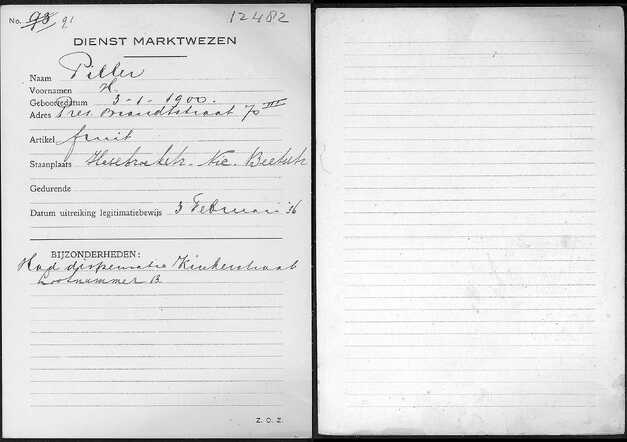 No. 93 91
12482
DIENST MARKTWEZEN
Naam Piller
Voornamen H.
Geboortedatum 3-1-1900.
Adres Pres. Brandtstraat 70 III
Artikel fruit
Staanplaats Nic. Beetsstr
Gedurende
Datum uitreiking legitimatiebewijs 3 Februari '36
BIJZONDERHEDEN:
Had dispensatie Kinkerstraat
Lootnummer B.
Z. O. Z.